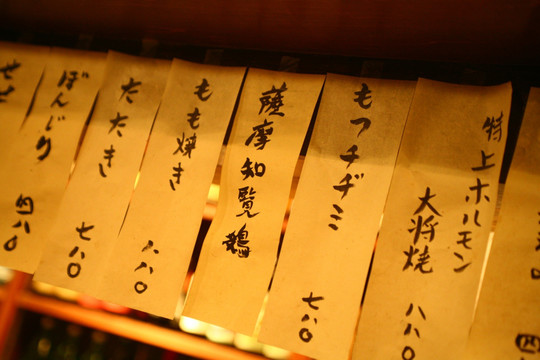 特上ホルモン
大将焼
八八〇
もつチヂミ
七八〇
薩摩知覧鶏
もも焼き
八八〇
たたき
七八〇
ぼんじり
四八〇